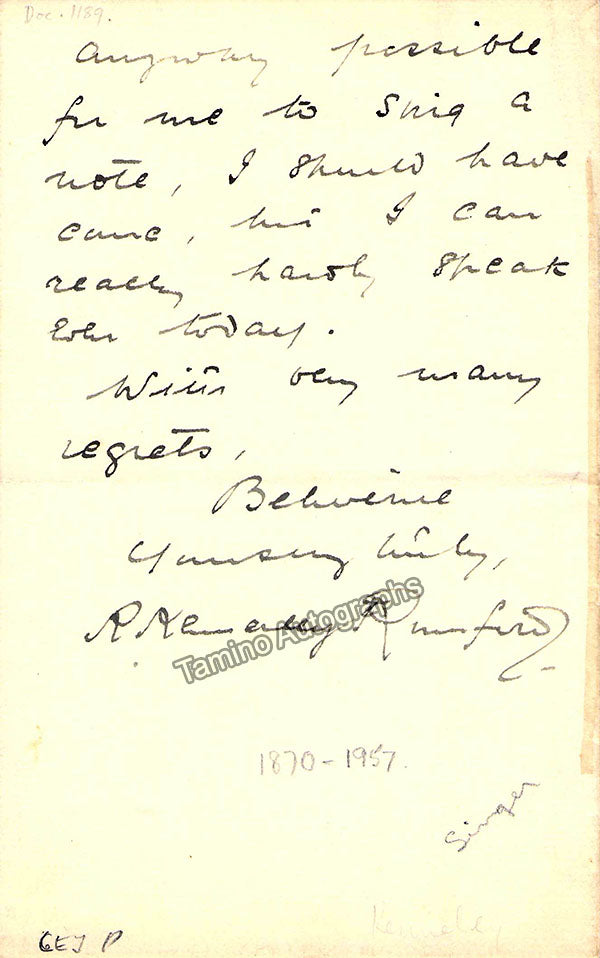 Doc. 1189.
anyway possible
for me to sing a
note, I should have
come, but I can
really hardly speak
even today.
With very many
regrets,
Believe me
Yours very truly,
R Kennerley Rumford
Tamino Autographs
1870-1957.
Singer